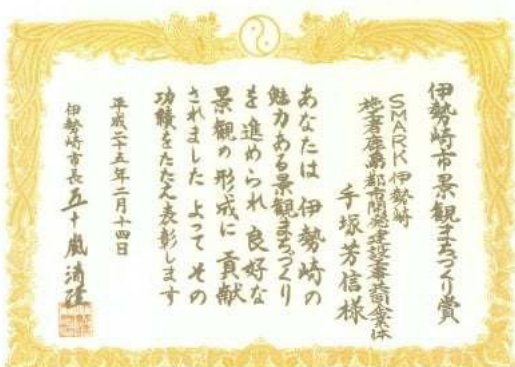 伊勢崎市景観まちづくり賞
SMARK伊勢崎
手塚芳信様
あなたは 伊勢崎の
魅力ある景観まちづくり
を進められ 良好な
景観の形成に 貢献
されました よって その
功績をたたえ表彰します
平成二十五年二月十四日
伊勢崎市長 五十嵐清隆